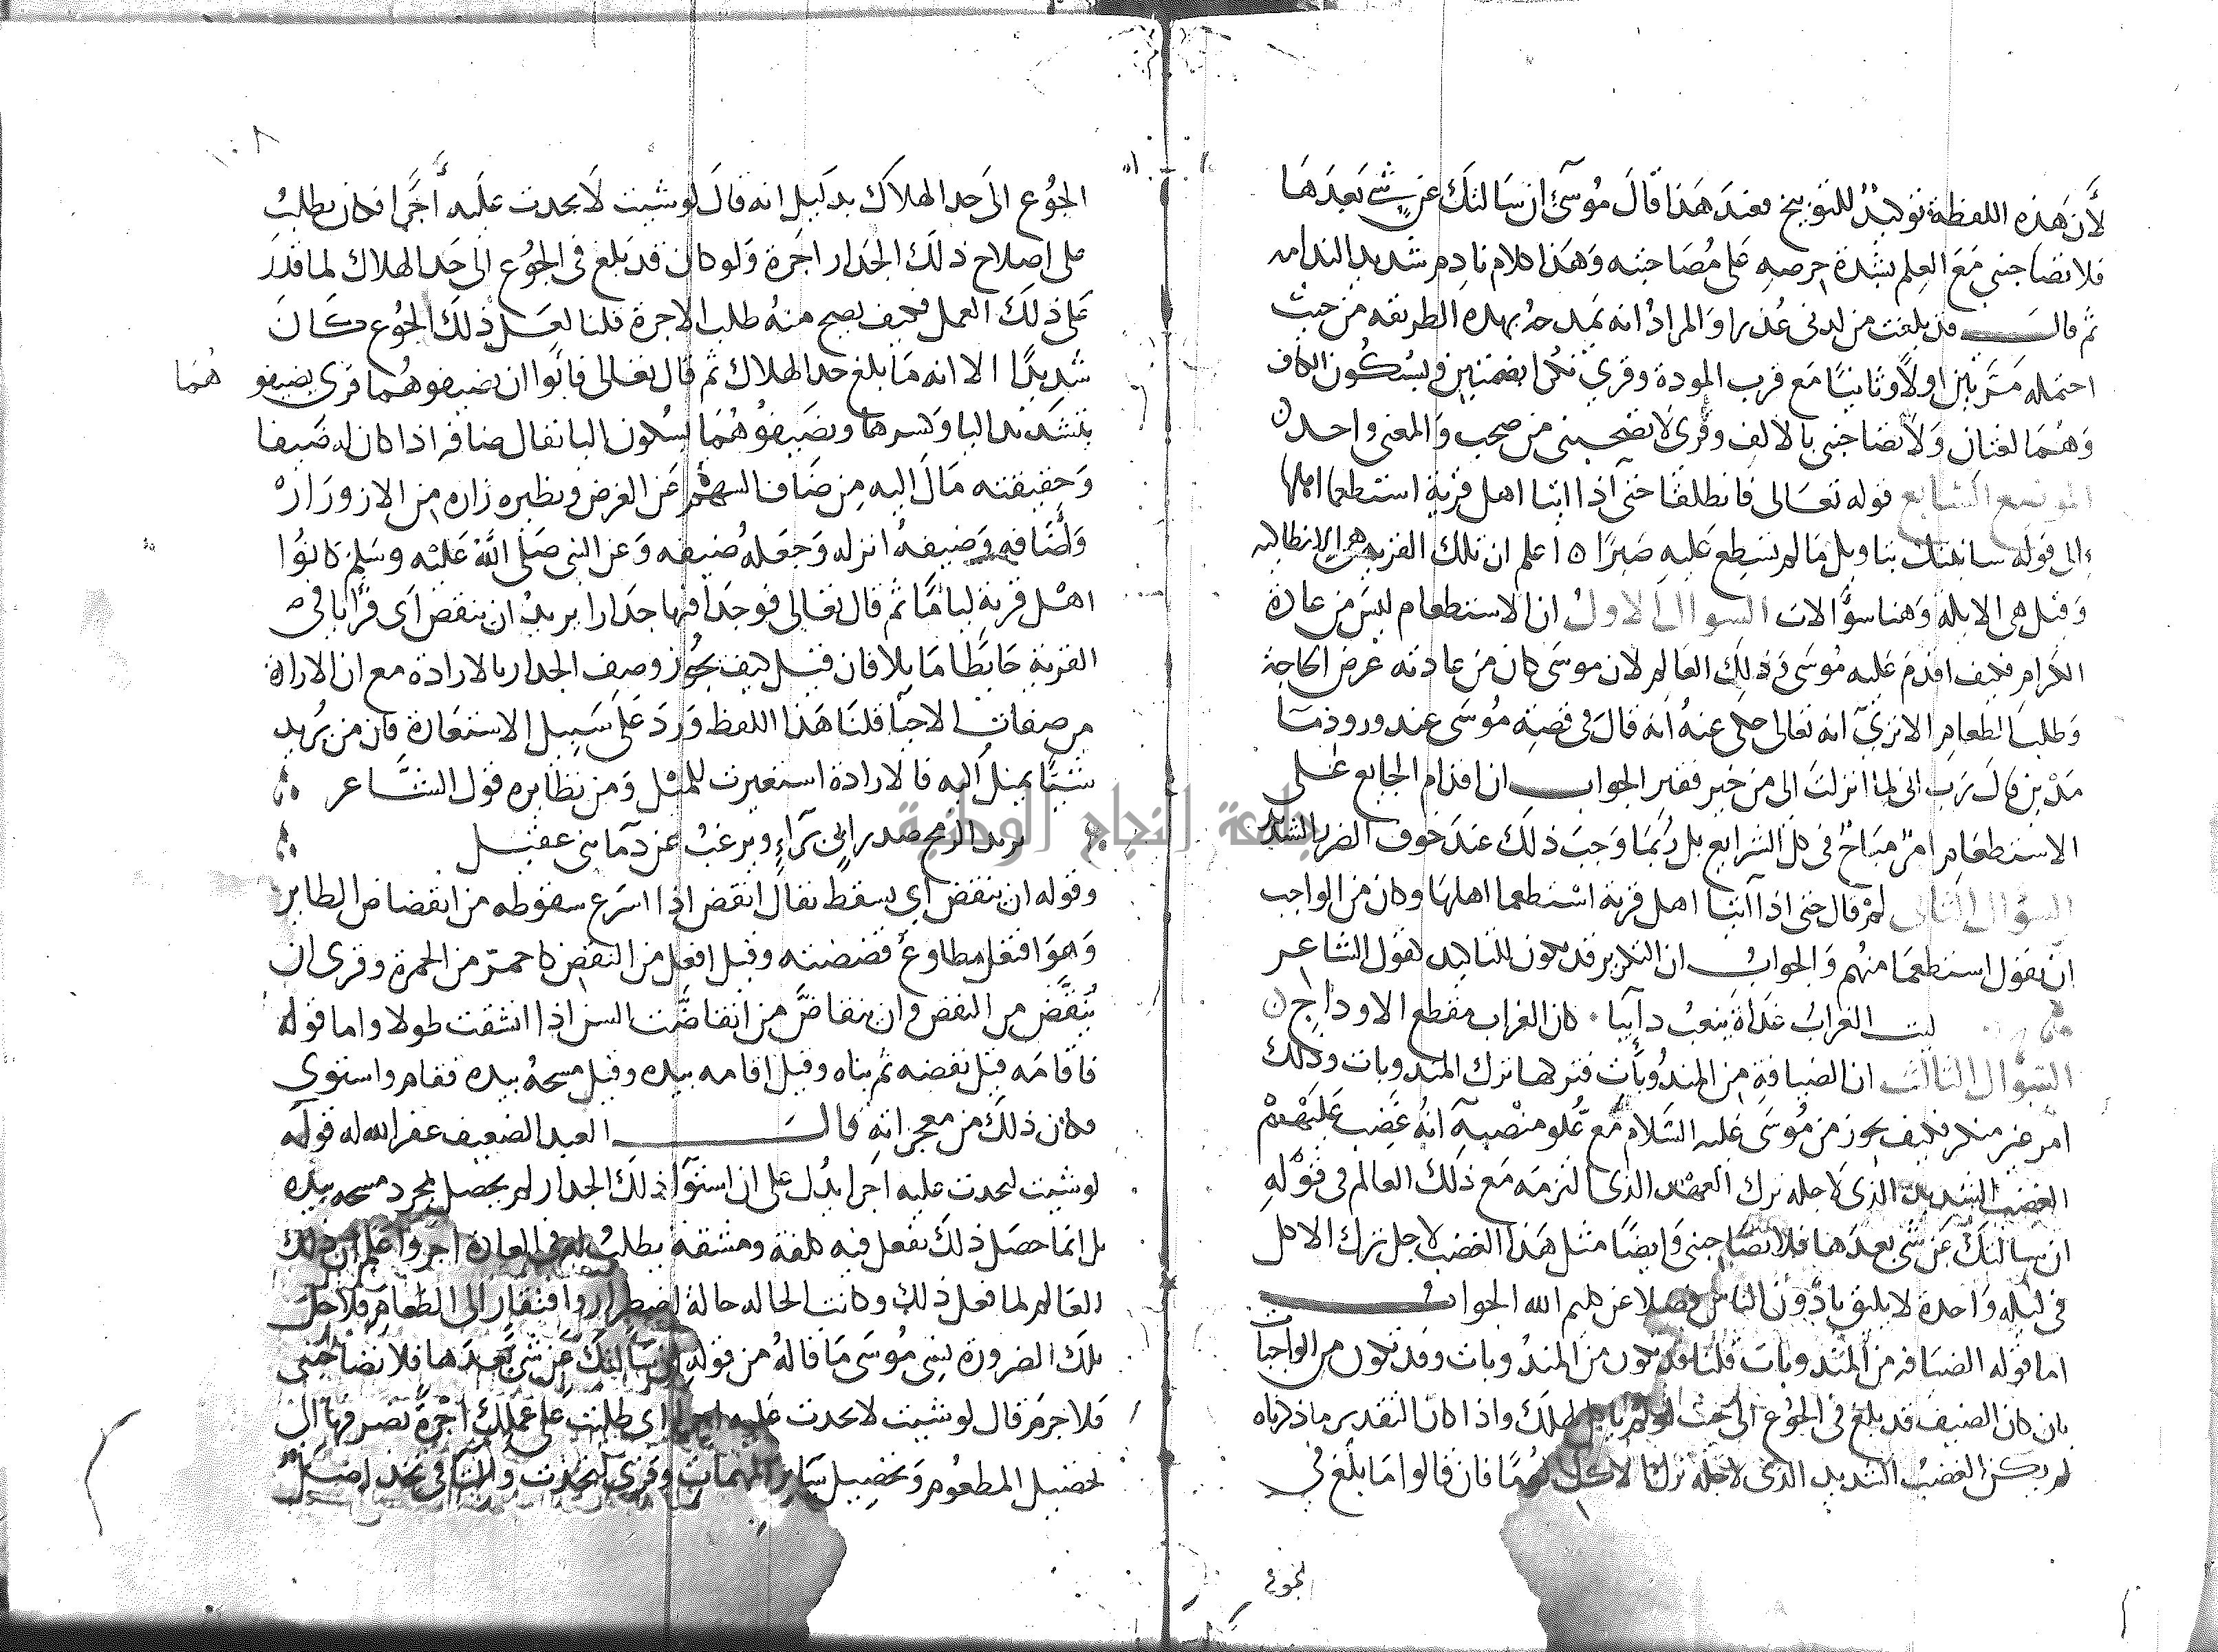 لأن هذه اللفظة توكيد للتوبيخ فعند هذا قال موسى ان سالتك عن شي بعدها
فلا تصاحبني مع العلم بشدة حرصه على مصاحبته وهذا كلام نادم شديد الندامه
ثم قال قد بلغت من لدني عذرا والمراد انه يمدحه بهذه الطريقه من حيث
احتمله مرتين اولا وثانيا مع قرب المودة وقري نكرا بضمتين وبسكون الكاف
وهما لغتان ولا تصاحبني بالالف وقرى لا تصحبني من صحب والمعنى واحد
الموضع السابع قوله تعالى فانطلقا حتى اذا اتيا اهل قرية استطعما اهلها
الى قوله سانبئك بتاويل ما لم تسطع عليه صبرا اعلم ان تلك القرية هي الانطاكيه
وقيل هي الابلة وهنا سؤالات السوال الاول ان الاستطعام ليس من عادة
الكرام فكيف اقدم عليه موسى وذلك العالم لان موسى كان من عادته عرض الحاجة
وطلب الطعام الا ترى انه تعالى حكى عنه انه قال في قصة موسى عند ورود ما
مدين قال رب اني لما انزلت الي من خير فقير الجواب ان اقدام الجايع على
الاستطعام امر مباح في كل الشرايع بل ربما وجب ذلك عند خوف الضرر الشديد
السؤال الثاني لم قال حتى اذا اتيا اهل قرية استطعما اهلها وكان من الواجب
ان يقول استطعما منهم والجواب ان التكرير قد يكون للتاكيد كقول الشاعر
ليت الغراب غداة ينعب دايبا كان الغراب مقطع الاوداج
السؤال الثالث ان الضيافة من المندوبات فتركها ترك المندوبات وذلك
امر غير منكر فكيف يجوز من موسى عليه السلام مع علو منصبه انه غضب عليهم
الغضب الشديد الذي لاجله ترك العهد الذي التزمه مع ذلك العالم في قوله
ان سالتك عن شي بعدها فلا تصاحبني وايضا مثل هذا الغضب لاجل ترك الاكل
في ليله واحدة لا يليق بادون الناس فضلا عن كليم الله الجواب
اما قوله الضيافه من المندوبات قلنا قد تكون من المندوبات وقد تكون من الواجبات
بان كان الضيف قد بلغ في الجوع الى حيث لو لم ياكل لهلك واذا كان التقدير ما ذكرناه
لم يكن الغضب الشديد الذي لاجله ترك الاكل يوما فان قالوا ما بلغ في
الجوع
١٠٨
الجوع الى حد الهلاك بدليل انه قال لو شيت لاتخذت عليه أجرا فكان يطلب
على اصلاح ذلك الجدار اجرة ولو كان قد بلغ في الجوع الى حد الهلاك لما قدر
على ذلك العمل فكيف يصح منه طلب الاجرة قلنا لعل ذلك الجوع كان
شديدا الا انه ما بلغ حد الهلاك ثم قال تعالى فابوا ان يضيفوهما قرى يضيفو هما
بتشديد اليا وكسرها ويضيفوهما بسكون اليا يقال ضافه اذا كان له ضيفا
وحقيقته مال اليه من ضاف السهم عن الغرض ونظيره زاره من الازورار
واضافه وضيفه انزله وجعله ضيفه وعن النبي صلى الله عليه وسلم كانوا
اهل قرية لياما ثم قال تعالى فوجدا فيها جدارا يريد ان ينقض اى فرأيا في
القرية حايطا مايلا فان قيل كيف يجوز وصف الجدار بالارادة مع ان الارادة
من صفات الاحيا قلنا هذا اللفظ ورد على سبيل الاستعارة فان من يريد
شيئا يميل اليه فالارادة استعيرت للميل ومن نظايره قول الشاعر
يريد الرمح صدر ابي براء ويرغب عن دما بني عقيل
وقوله ان ينقض اي يسقط يقال انقض اذا اسرع سقوطه من انقضاض الطاير
وهو انفعل مطاوع قضضته وقيل افعل من النقض كاحمر من الحمرة وقرى ان
ينقض من النقض وان ينقاض من انقاضت السن اذا انشقت طولا واما قوله
فاقامه قيل نقضه ثم بناه وقيل اقامه بيده وقيل مسحه بيده فقام واستوى
وكان ذلك من معجزاته قال العبد الضعيف غفر الله له قوله
لو شيت لتخذت عليه اجرا يدل على ان استوا ذلك الجدار لم يحصل بمجرد مسحه بيده
بل انما حصل ذلك بفعل فيه كلفة ومشقه يطلب له في العادة اجر واعلم ان ذلك
العالم لما فعل ذلك وكانت الحاله حالة اضطرار وافتقار الى الطعام فلاجل
تلك الضرورة نسي موسى ما قاله من قوله ان سالتك عن شي بعدها فلا تصاحبني
فلا جرم قال لو شيت لاتخذت عليه اجرا اي طلبت على عملك اجرة تصرفها الى
تحصيل المطعوم وتحصيل ساير المهمات وقرى لتخذت والتا في تخذ اصل
جامعة النجاح الوطنية